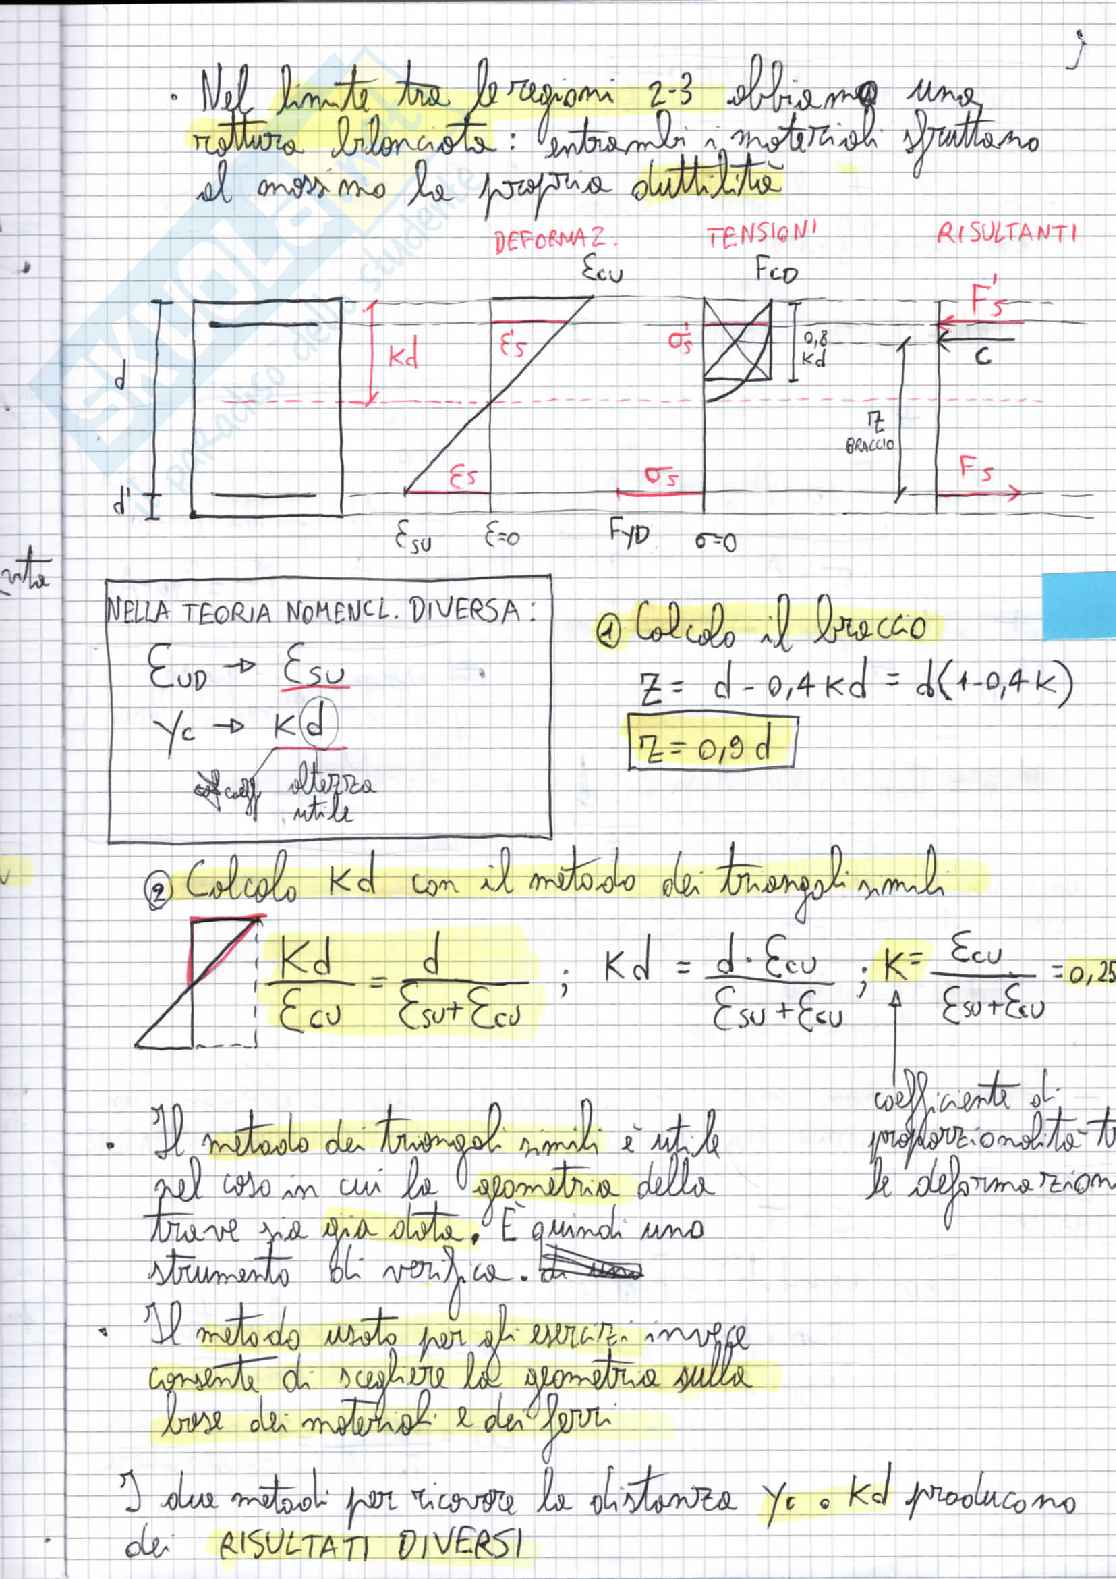 · Nel limite tra le regioni 2-3 abbiamo una
rottura bilanciata: entrambi i materiali sfruttano
al massimo la propria duttilità
DEFORMAZ. TENSIONI RISULTANTI
εcu Fcd F's
d Kd ε's σ's 0,8 Kd C
z BRACCIO
d' εs σs Fs
εsu ε=0 FYD σ=0
NELLA TEORIA NOMENCL. DIVERSA:
εUD → εsu
yc → Kd
coeff altezza
utile
① Calcolo il braccio
z = d - 0,4 Kd = d(1-0,4K)
z = 0,9 d
② Calcolo Kd con il metodo dei triangoli simili
Kd/εcu = d/(εsu+εcu) ; Kd = d·εcu/(εsu+εcu) ; K = εcu/(εsu+εcu) = 0,25
coefficiente di
proporzionalità t
le deformazion
· Il metodo dei triangoli simili è utile
nel caso in cui la geometria della
trave sia già data. È quindi uno
strumento di verifica.
· Il metodo usato per gli esercizi invece
consente di scegliere la geometria sulla
base dei materiali e dei ferri
I due metodi per ricavare la distanza yc o Kd producono
dei RISULTATI DIVERSI
SKUOLA.net
il paradiso dello studente